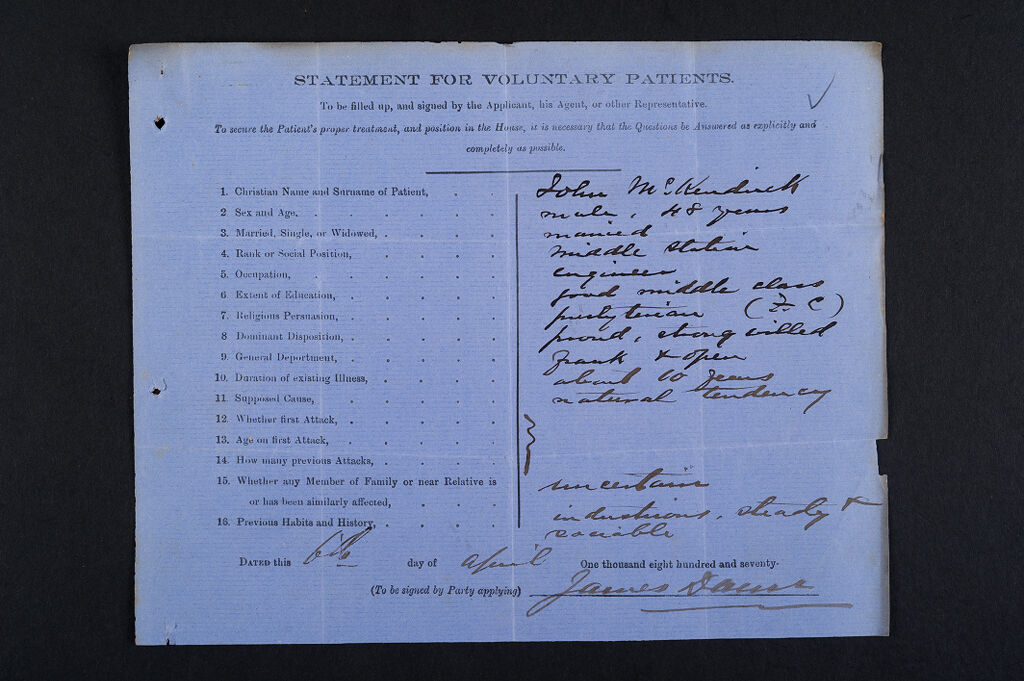 STATEMENT FOR VOLUNTARY PATIENTS.
To be filled up, and signed by the Applicant, his Agent, or other Representative.
To secure the Patient's proper treatment, and position in the House, it is necessary that the Questions be Answered as explicitly and
completely as possible.
1. Christian Name and Surname of Patient, John McKendrick
2 Sex and Age, male, 48 years
3. Married, Single, or Widowed, married
4. Rank or Social Position, middle station
5. Occupation, engineer
6 Extent of Education, good middle class
7. Religious Persuasion, presbyterian (F. C)
8 Dominant Disposition, proud, strong willed
9. General Department, frank & open
10. Duration of existing Illness, about 10 years
11. Supposed Cause, natural tendency
12. Whether first Attack,
13. Age on first Attack,
14. How many previous Attacks,
15. Whether any Member of Family or near Relative is
or has been similarly affected, uncertain
16. Previous Habits and History, industrious, steady &
sociable
DATED this 6th day of April One thousand eight hundred and seventy.
(To be signed by Party applying) James